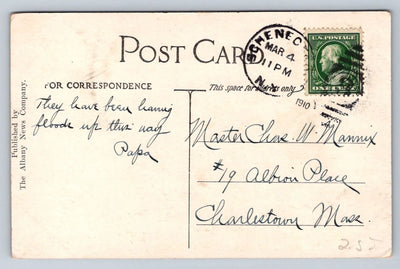 POST CARD
SCHENEC
MAR 4
11 PM
N.Y.
1910
U.S. POSTAGE
ONE CENT
FOR CORRESPONDENCE
This space for address only
They have been having
floods up this way
Papa
Master Chas. W. Mannix
#19 Albion Place
Charlestown Mass.
Published by
The Albany News Company.